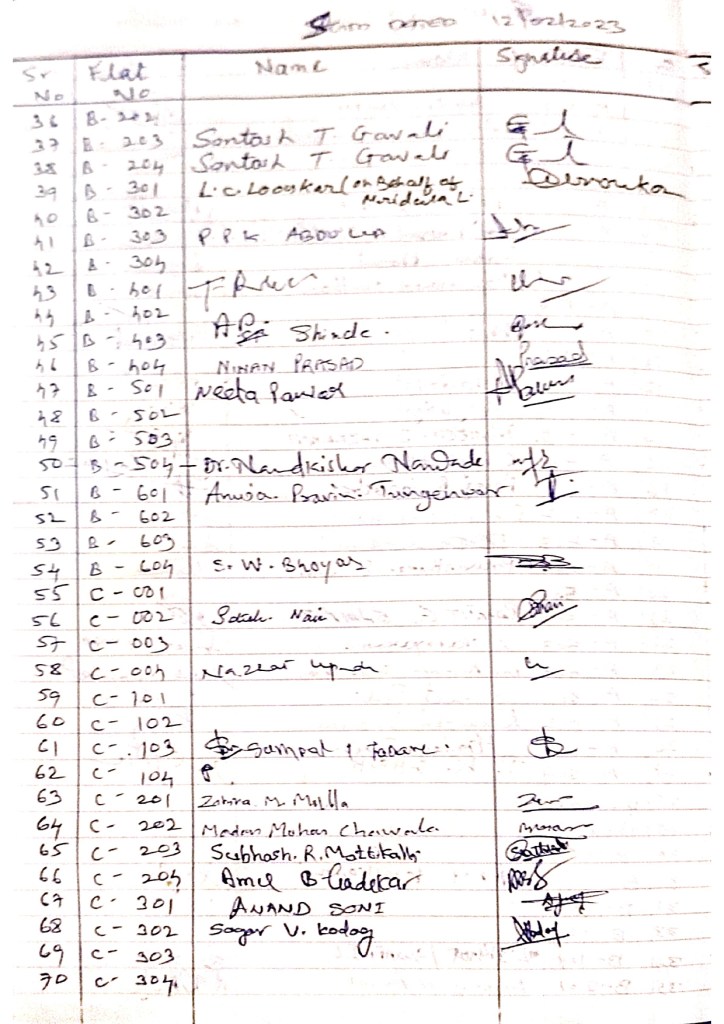 12/02/2023
Sr No Flat No Name Signature
36 B- 202
37 B- 203 Santosh T Gavali
38 B- 204 Santosh T Gavali
39 B- 301 L.C. (on Behalf of
40 B- 302
41 B- 303 P P K ABDULLA
42 B- 304
43 B- 401
44 B- 402
45 B- 403 Shinde.
46 B- 404 NINAN PRASAD Prasad
47 B- 501 Neeta Pawar
48 B- 502
49 B- 503
50 B- 504 Dr. Nandkishor Nawade
51 B- 601 Pravin
52 B- 602
53 B- 603
54 B- 604 S. W. Bhoyar
55 C- 001
56 C- 002 Nair
57 C- 003
58 C- 004
59 C- 101
60 C- 102
61 C- 103 Sampat
62 C- 104
63 C- 201 Zohra M. Mulla
64 C- 202 Madan Mohan
65 C- 203 Subhash. R. Mattikalli
66 C- 204 Amul B Gadekar
67 C- 301 ANAND SONI
68 C- 302 Sagar V. Kodag
69 C- 303
70 C- 304